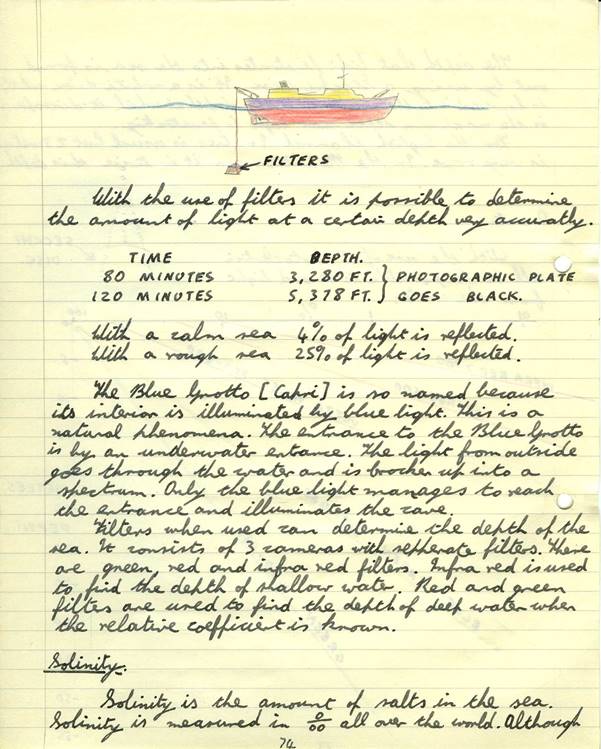 FILTERS
With the use of filters it is possible to determine
the amount of light at a certain depth very accuratly.
TIME DEPTH.
80 MINUTES 3,280 FT. } PHOTOGRAPHIC PLATE
120 MINUTES 5,378 FT. } GOES BLACK.
With a calm sea 4% of light is reflected.
With a rough sea 25% of light is reflected.
The Blue Grotto [Capri] is so named because
its interior is illuminated by blue light. This is a
natural phenomena. The entrance to the Blue Grotto
is by an underwater entance. The light from outside
goes through the water and is brocken up into a
spectrum. Only the blue light manages to reach
the entrance and illuminates the cave.
Filters when used can determine the depth of the
sea. It consists of 3 cameras with sepherate filters. There
are green, red and infra red filters. Infra red is used
to find the depth of shallow water. Red and green
filtes are used to find the depth of deep water when
the relative coefficient is known.
Solinity.
Solinity is the amount of salts in the sea.
Solinity is measured in 0/00 all over the world. Although
74